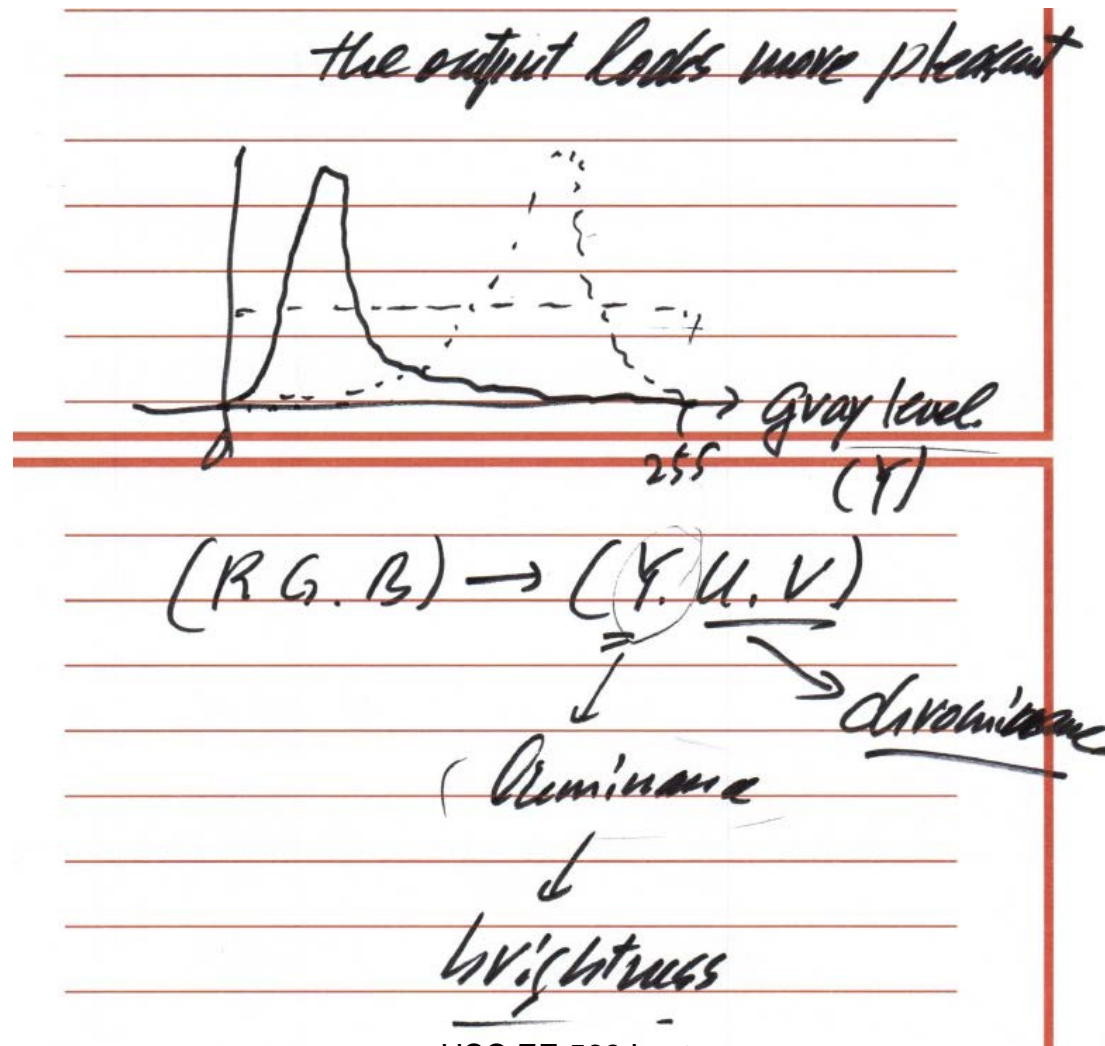 the output looks more pleasant
0
255
Gray level
(Y)
(R G. B) → (Y. U. V)
chrominance
Luminance
brightness